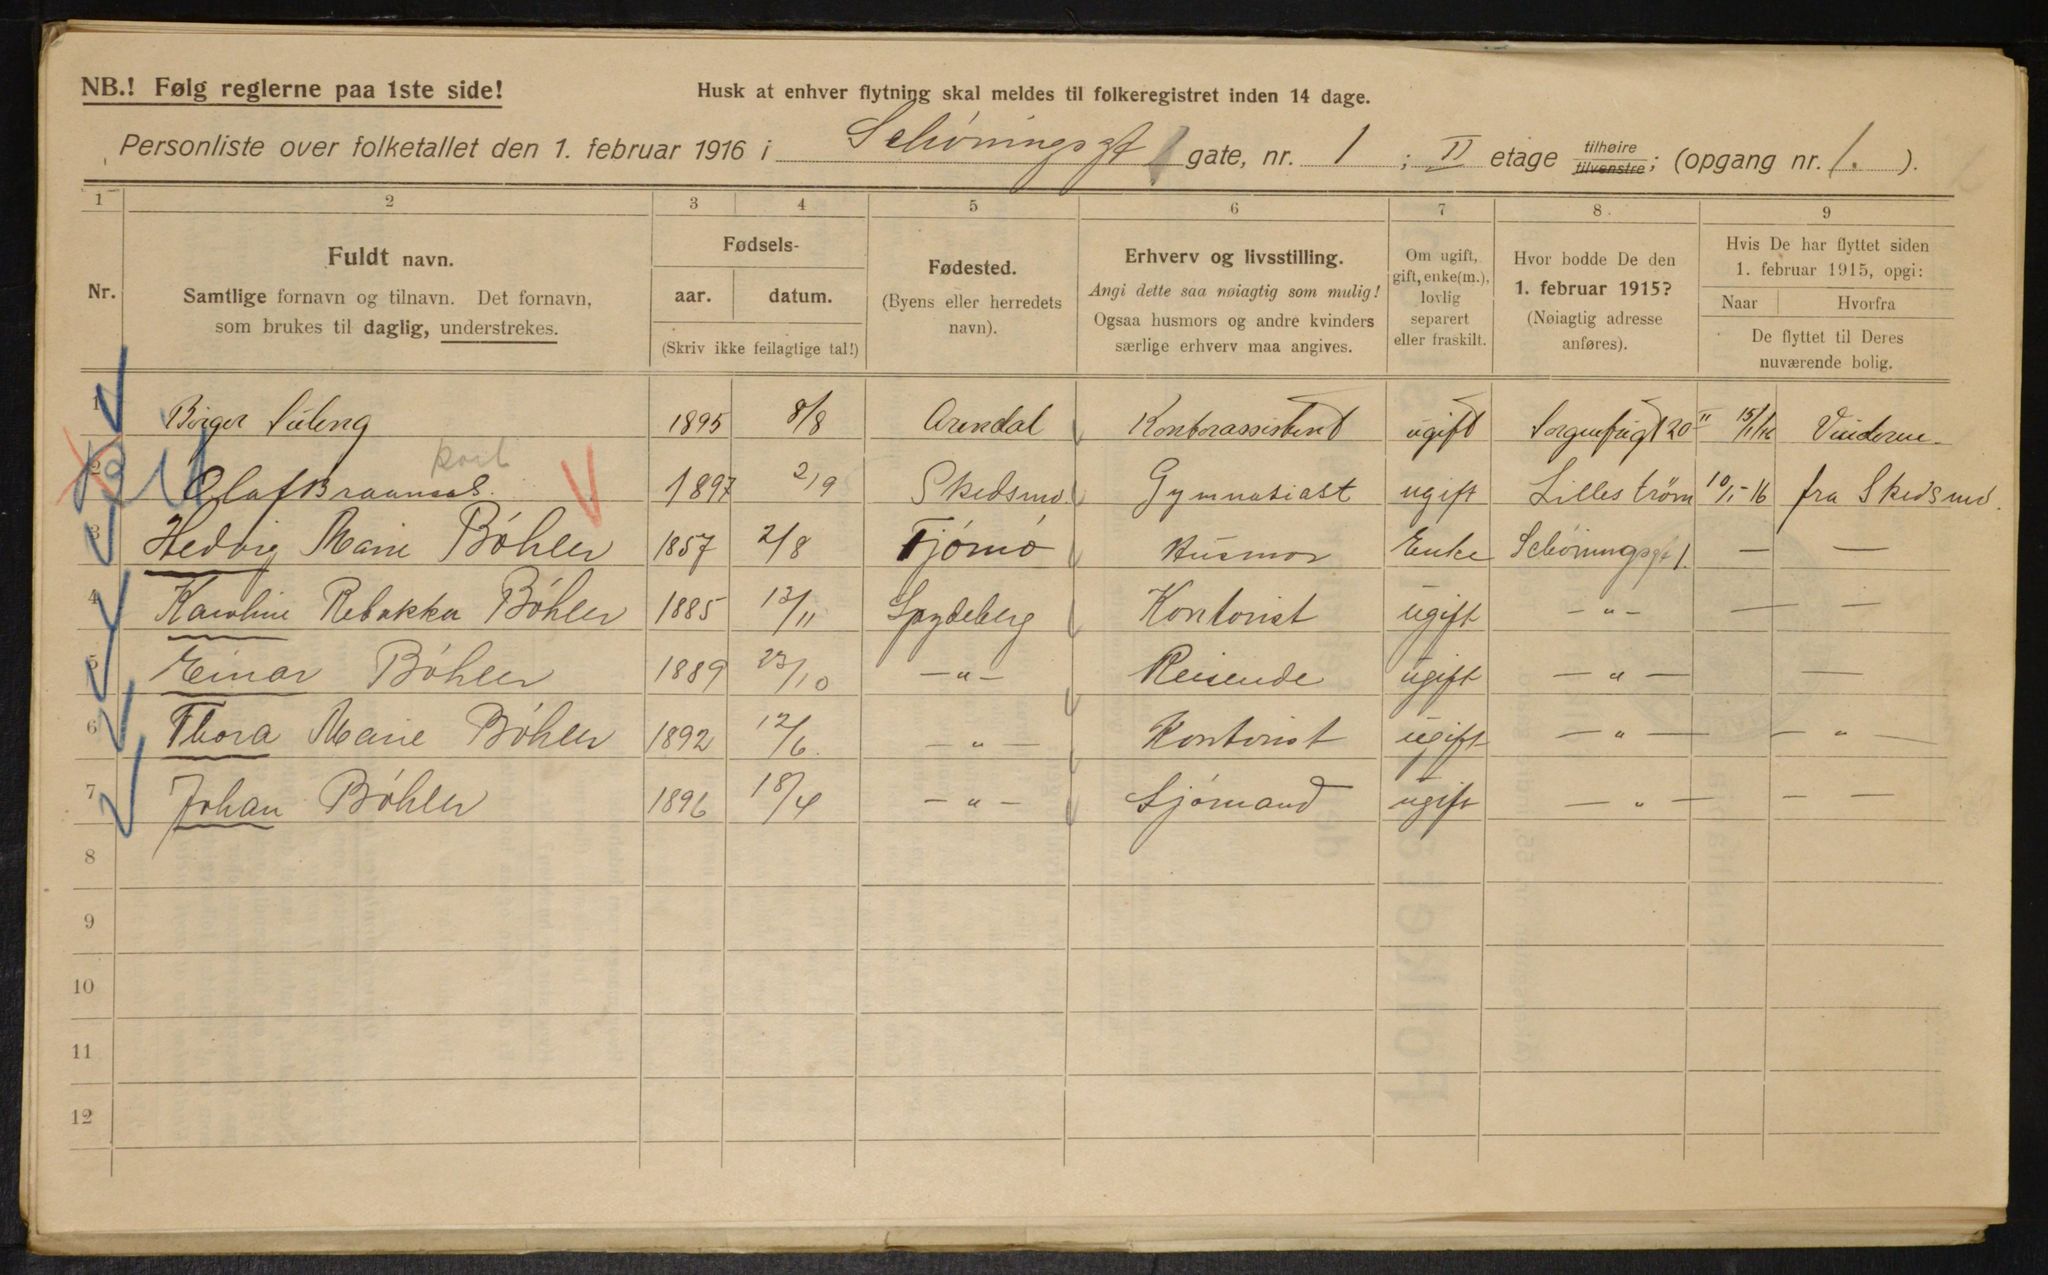 NB.! Følg reglerne paa 1ste side!
Husk at enhver flytning skal meldes til folkeregistret inden 14 dage.
Personliste over folketallet den 1. februar 1916 i Schøningsgt gate, nr. 1 ; II etage tilhøire tilvenstre; (opgang nr. 1. ).
1 2 3 4 5 6 7 8. 9
Nr.
Fuldt navn.
Samtlige fornavn og tilnavn. Det fornavn,
som brukes til daglig, understrekes.
Fødsels-
aar. datum.
(Skriv ikke feilagtige tal!)
Fødested.
(Byens eller herredets
navn).
Erhverv og livsstilling.
Angi dette saa nøiagtig som mulig!
Ogsaa husmors og andre kvinders
særlige erhverv maa angives.
Om ugift,
gift, enke(m.),
lovlig
separert
eller fraskilt.
Hvor bodde De den
1. februar 1915?
(Nøiagtig adresse
anføres).
Hvis De har flyttet siden
1. februar 1915, opgi:
Naar Hvorfra
De flyttet til Deres
nuværende bolig.
1 Birger 1895 8/8 Arendal Kontorassistent ugift 15/1/16 Vinderen
kort
2 Olaf 1897 2/9 Skedsmo. Gymnasiast ugift Lillestrøm 10/1-16 fra Skedsmo.
3 Hedvig Marie Bøhler 1857 2/8 Tjømø Husmor Enke Schøningsgt 1. — —
4 Karoline Rebekka Bøhler 1885 13/11 Spydeberg Kontorist ugift — " — — —
5 Einar Bøhler 1889 23/10 — " — Reisende ugift — " — —
6 Thora Marie Bøhler 1892 12/6. — " — Kontorist ugift — " — — " —
7 Johan Bøhler 1896 18/4 — " — Sjømand ugift — " — — —
8
9
10
11
12